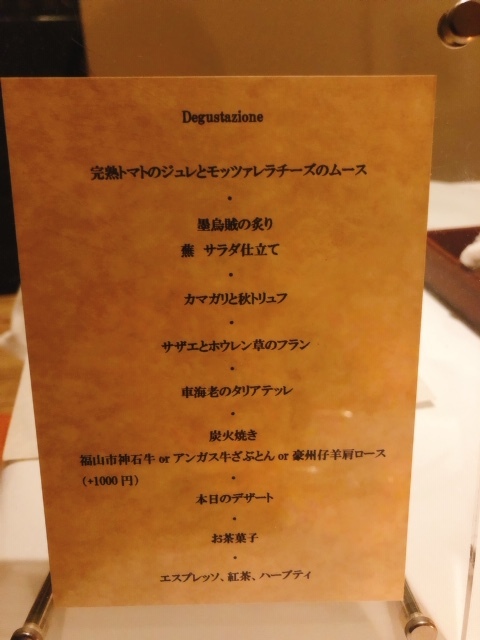 Degustazione
完熟トマトのジュレとモッツァレラチーズのムース
・
墨烏賊の炙り
蕪 サラダ仕立て
・
カマガリと秋トリュフ
・
サザエとホウレン草のフラン
・
車海老のタリアテッレ
・
炭火焼き
福山市神石牛 or アンガス牛ざぶとん or 豪州仔羊肩ロース
(+1000 円)
・
本日のデザート
・
お茶菓子
・
エスプレッソ、紅茶、ハーブティ